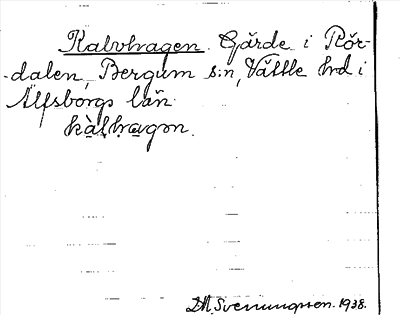 Kalvhagen. Gärde i Rör-
dalen, Bergum s:n, Vättle hd i
Älfsborgs län.
kàlhagən.
D.M. Svenungsson. 1938.